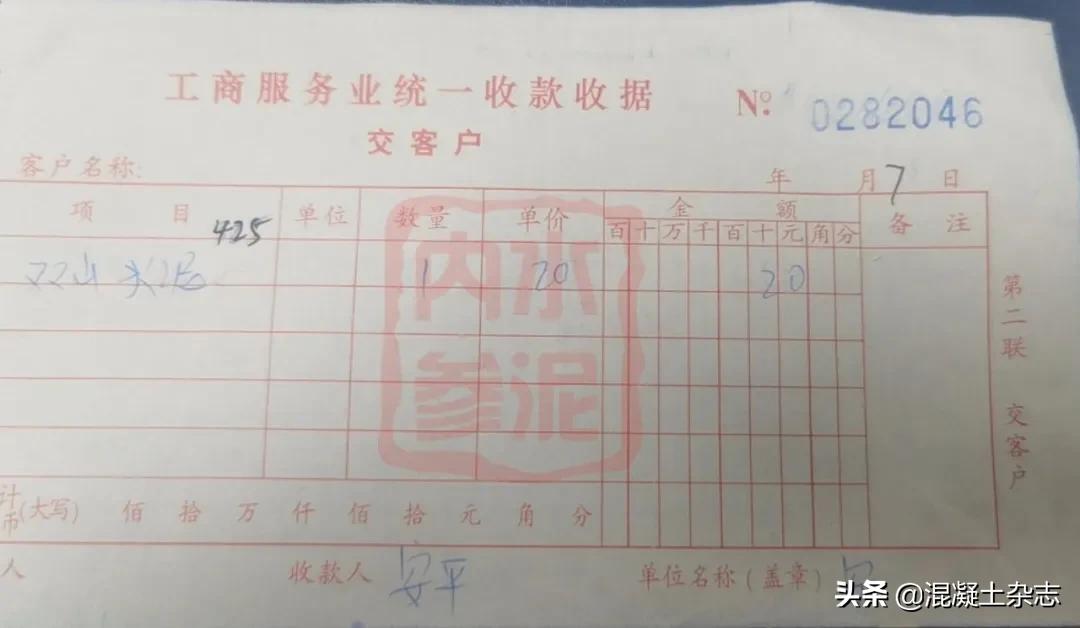 工商服务业统一收款收据
№ 0282046
交客户
客户名称:
年 月 7 日
项 目 单位 数量 单价 金 额 备 注
百 十 万 千 百 十 元 角 分
425
1 20 20
水泥内参
第二联 交客户
计 币 (大写) 佰 拾 万 仟 佰 拾 元 角 分
人 收款人 安平 单位名称(盖章)
头条 @混凝土杂志